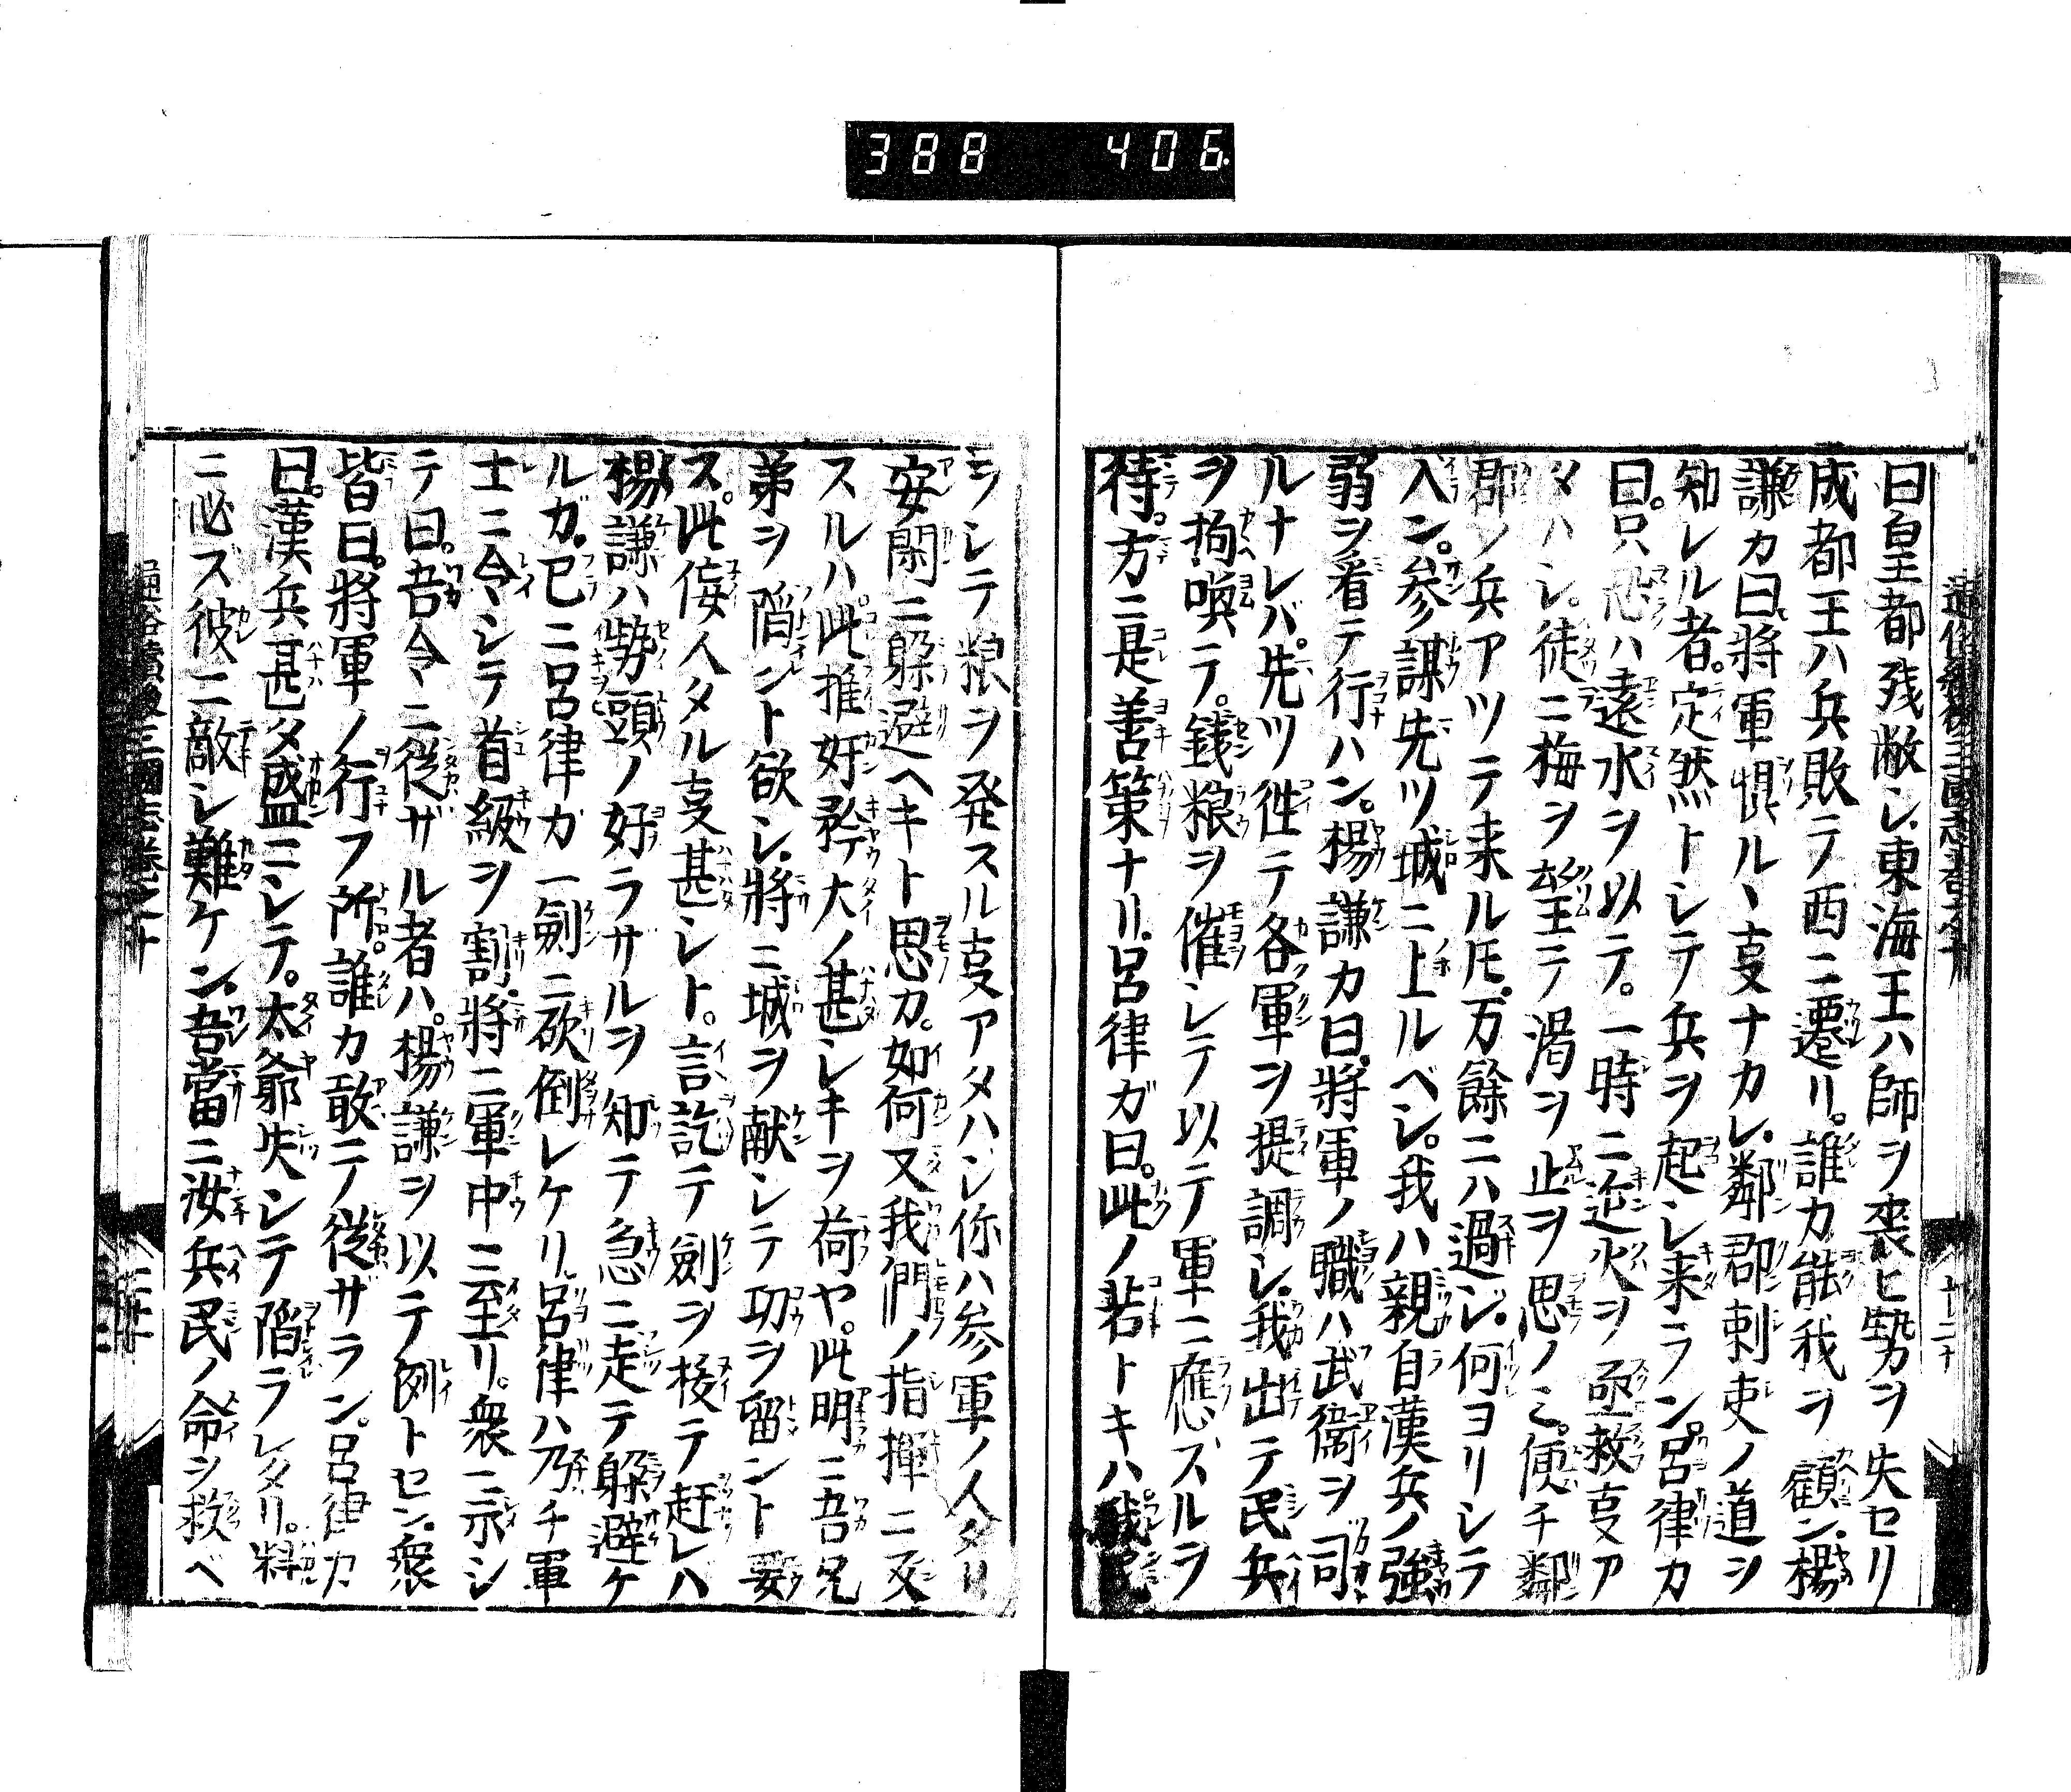 388 406
曰皇都残敝シ東海王ハ師ヲ喪ヒ勢カヲ失セリ
成都王ハ兵敗テ西ニ遷リ。誰カ能我ヲ顧ン。楊
謙カ曰將軍惧ルヽ事ナカレ鄰郡刺吏ノ道ヲ
知レル者。定然トシテ兵ヲ起シ来ラン。呂律カ
曰。只恐ハ遠水ヲ以テ。一時ニ近火ヲ亟救事ア
タハシ。徒ニ梅ヲ望テ渇ヲ止ヲ思ノミ。便チ鄰
郡ノ兵アツテ来ル𪜈。万餘ニハ過ジ。何ヨリシテ
入ン。参謀先ツ城ニ上ルベシ。我ハ親自漢兵ノ強
弱ヲ看テ行ハン。楊謙カ曰。將軍ノ職ハ武衞ヲ司
ルナレバ。先ツ徃テ各軍ヲ提調シ。我出テ民兵
ヲ拘喚テ。錢粮ヲ催シテ以テ軍ニ應ズルヲ
待。方ニ是善策ナリ。呂律ガ曰。此ノ若トキハ我
ヲシテ粮ヲ発スル事アタハシ你ハ参軍ノ人タリ
安閑ニ躱避ヘキト思カ。如何又我門ノ指揮ニ反
スルハ此推好矜大ノ甚シキヲ荷ヤ。此明ニ吾兄
弟ヲ陷ント欲シ。將ニ城ヲ献シテ功ヲ留ント要
ス。此侫人タル事甚シト。言訖テ劍ヲ椄テ赶レハ
楊謙ハ勢頭ノ好ラサルヲ知テ急ニ走テ躱避ケ
ルガ。已ニ呂律カ一劍ニ砍倒レケリ。呂律ハ乃チ軍
士ニ令シテ首級ヲ割。將ニ軍中ニ至リ。衆ニ示シ
テ曰。吾令ニ從ザル者ハ。楊謙ヲ以テ例トセン。衆
皆曰。將軍ノ行フ所。誰カ敢ニテ從ザラン。呂律カ
曰。漢兵甚タ盛ニシテ。太爺失シテ陷ラレタリ。料
ニ必ズ彼ニ敵シ難ケン。吾當ニ汝兵民ノ命ヲ救ベ